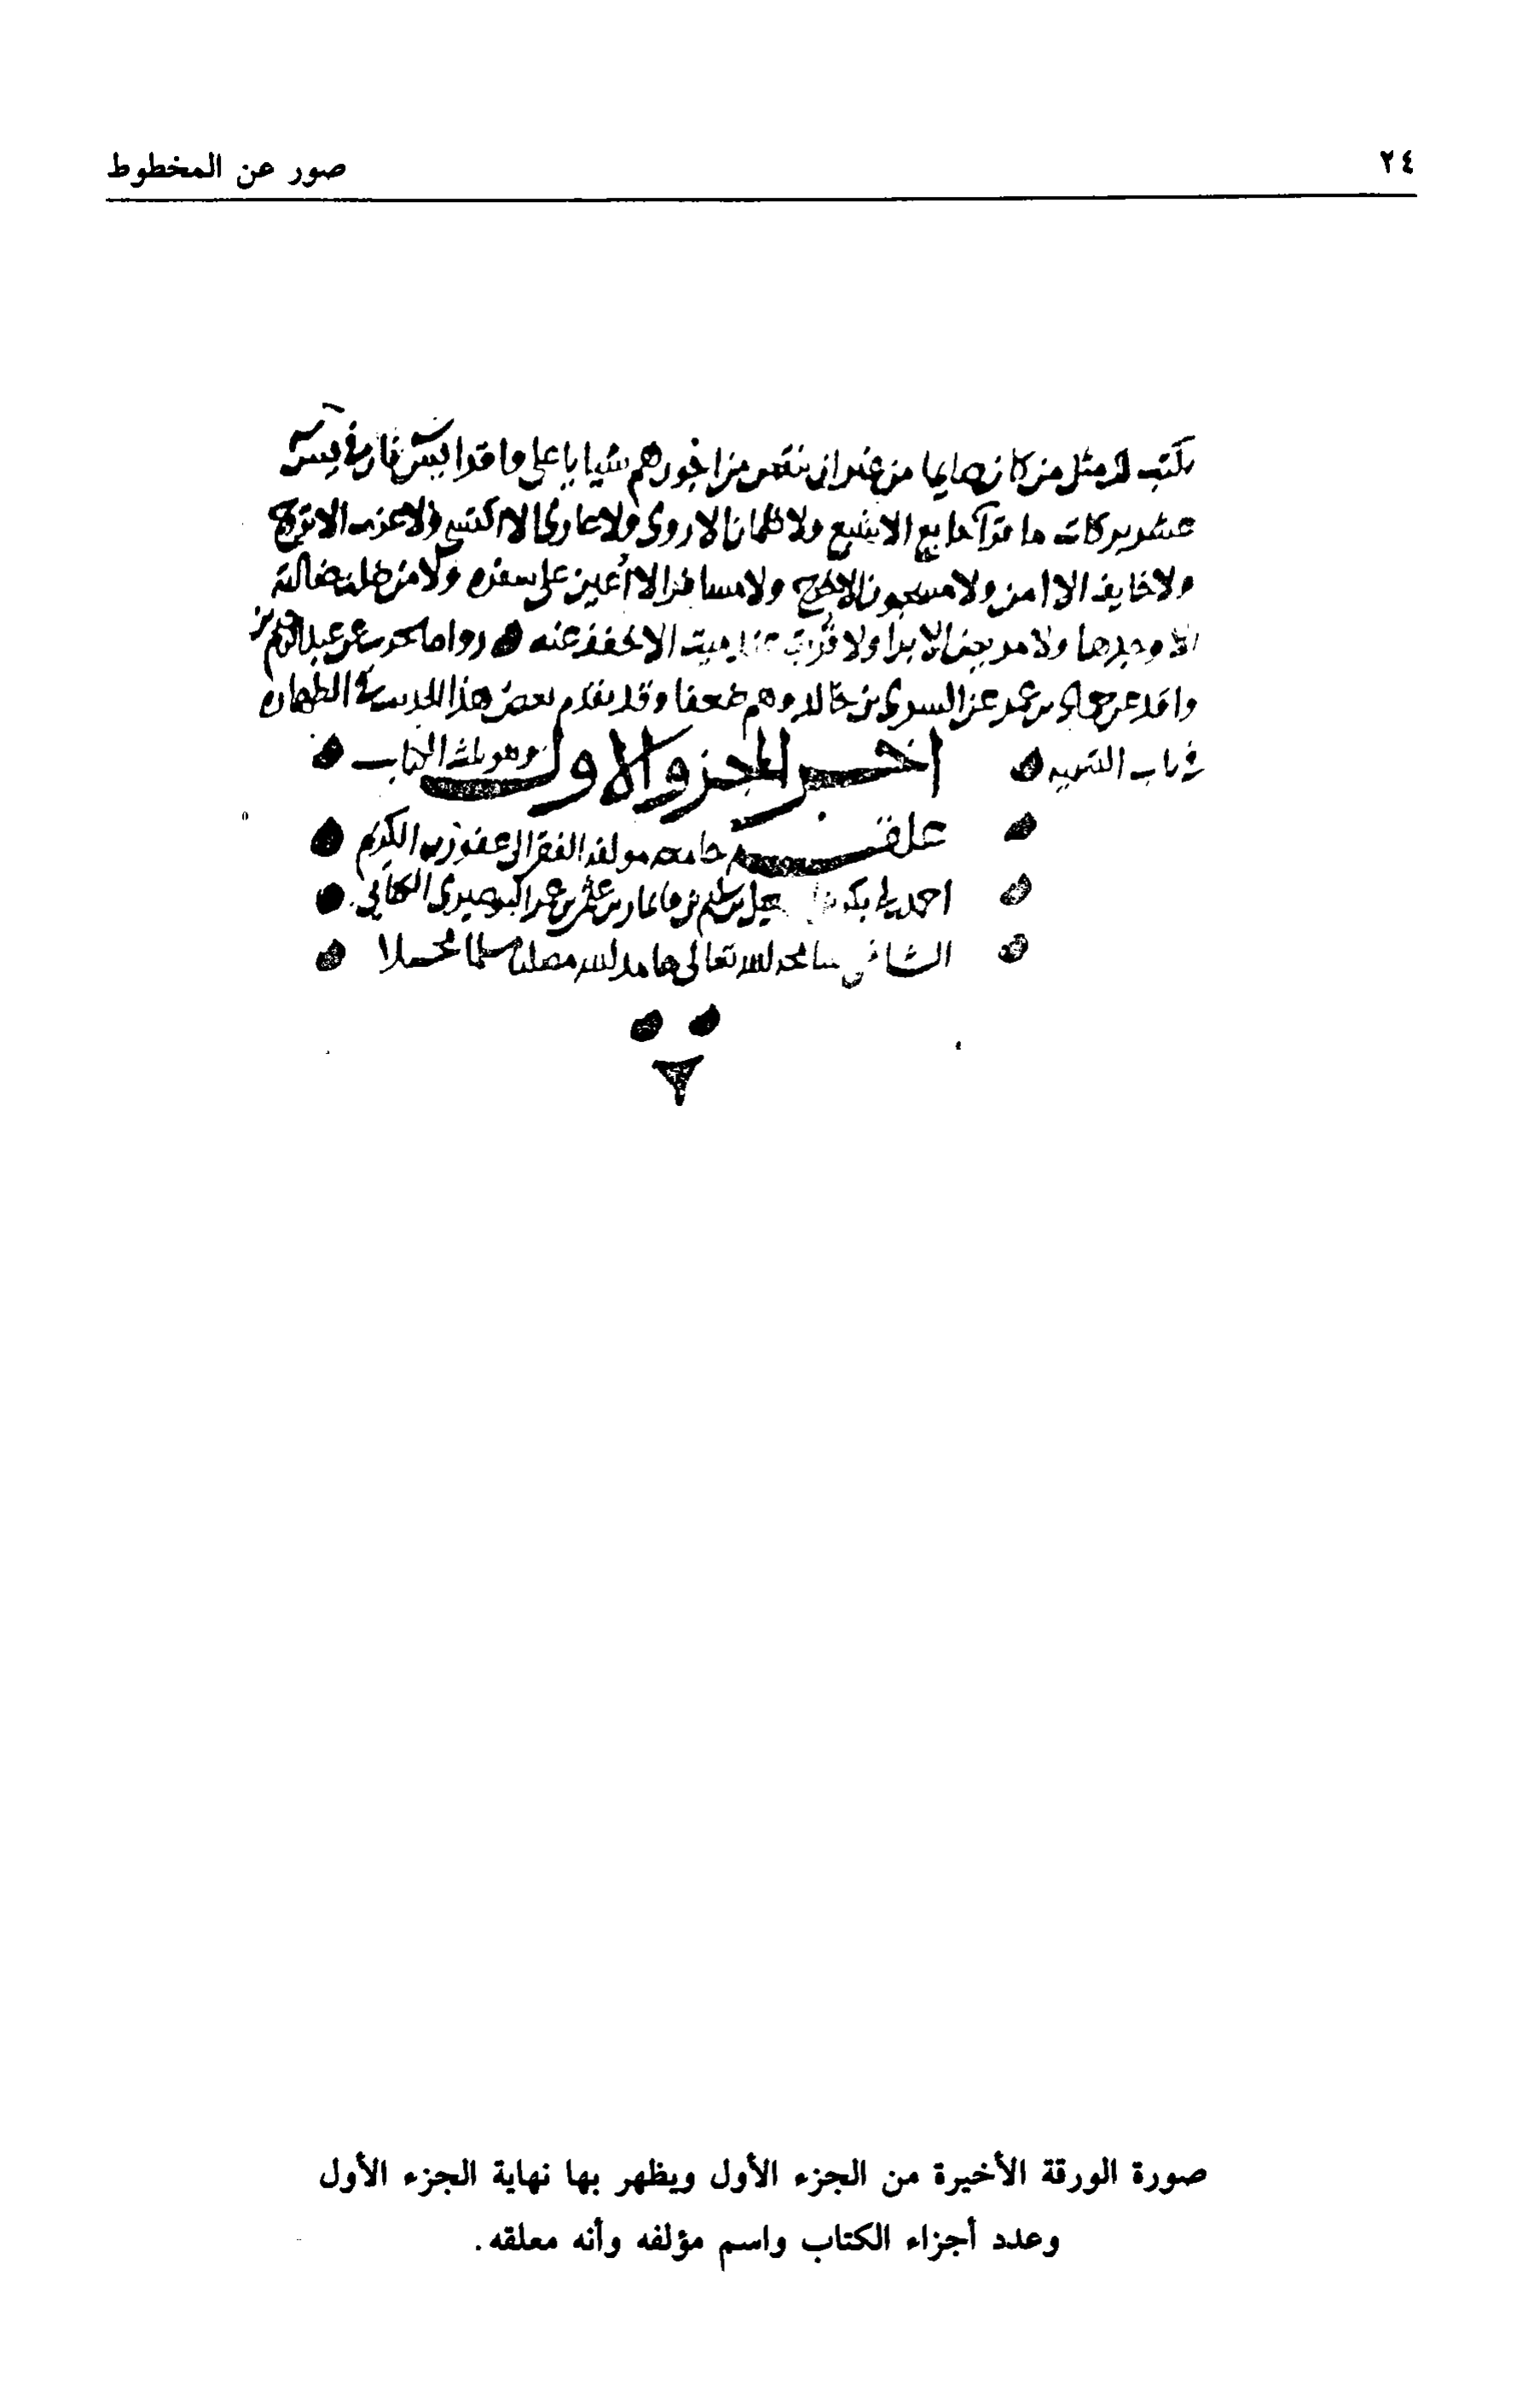 ٢٤
صور عن المخطوط
يكتب له مثل من كان صايما من غير ان ينقص من اجورهم شيا يا علي واقرا يس فان في يس
عشر بركات ما قرآها جايع الا شبع ولا ظمانا الا روى ولا عاري الا اكتسى ولا عزب الا تزوج
ولا خايف الا امن ولا مسجون الا خرج ولا مسافر الا أعين على سفره ولا من ضلت ضالة
الا وجدها ولا مريض الا برا ولا قرئت عند ميت الا خفف عنه رواه الحرث عن عبد الرحيم بن
واقد عن حماد بن عمرو عن السري بن خالد وهم ضعفا وقد تقدم بعض هذا الحديث في الطهارة
في باب التسمية
اخر الجزو الاول وهو ثلث الكتاب
علقه جامعه مولفه الفقير الى عفو ربه الكريم
احمد بن ابي بكر بن سليم بن قايماز بن عثمن بن عمر البوصيري الكناني
الشافعي تعالى حامدا لله مصليا مسلما محسبلا
صورة الورقة الأخيرة من الجزء الأول ويظهر بها نهاية الجزء الأول
وعدد أجزاء الكتاب واسم مؤلفه وأنه معلقه.